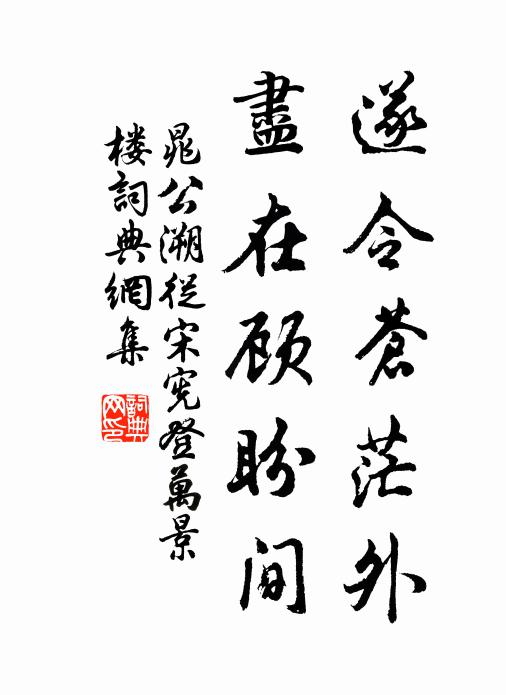 遂令蒼茫外
盡在顾盼间
晁公溯從宋宪登萬景
楼詞典網集
詞典网印